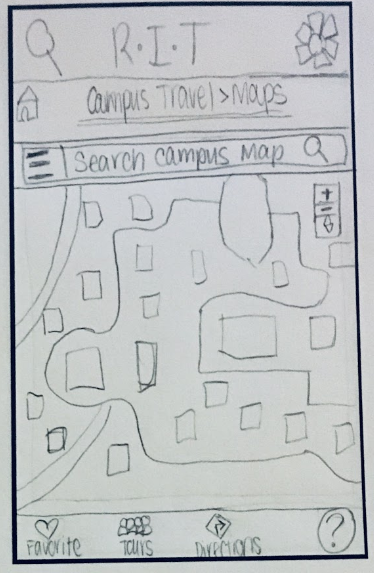 R·I·T
Campus Travel > Maps
Search campus Map
+
Favorite Tours Directions ?